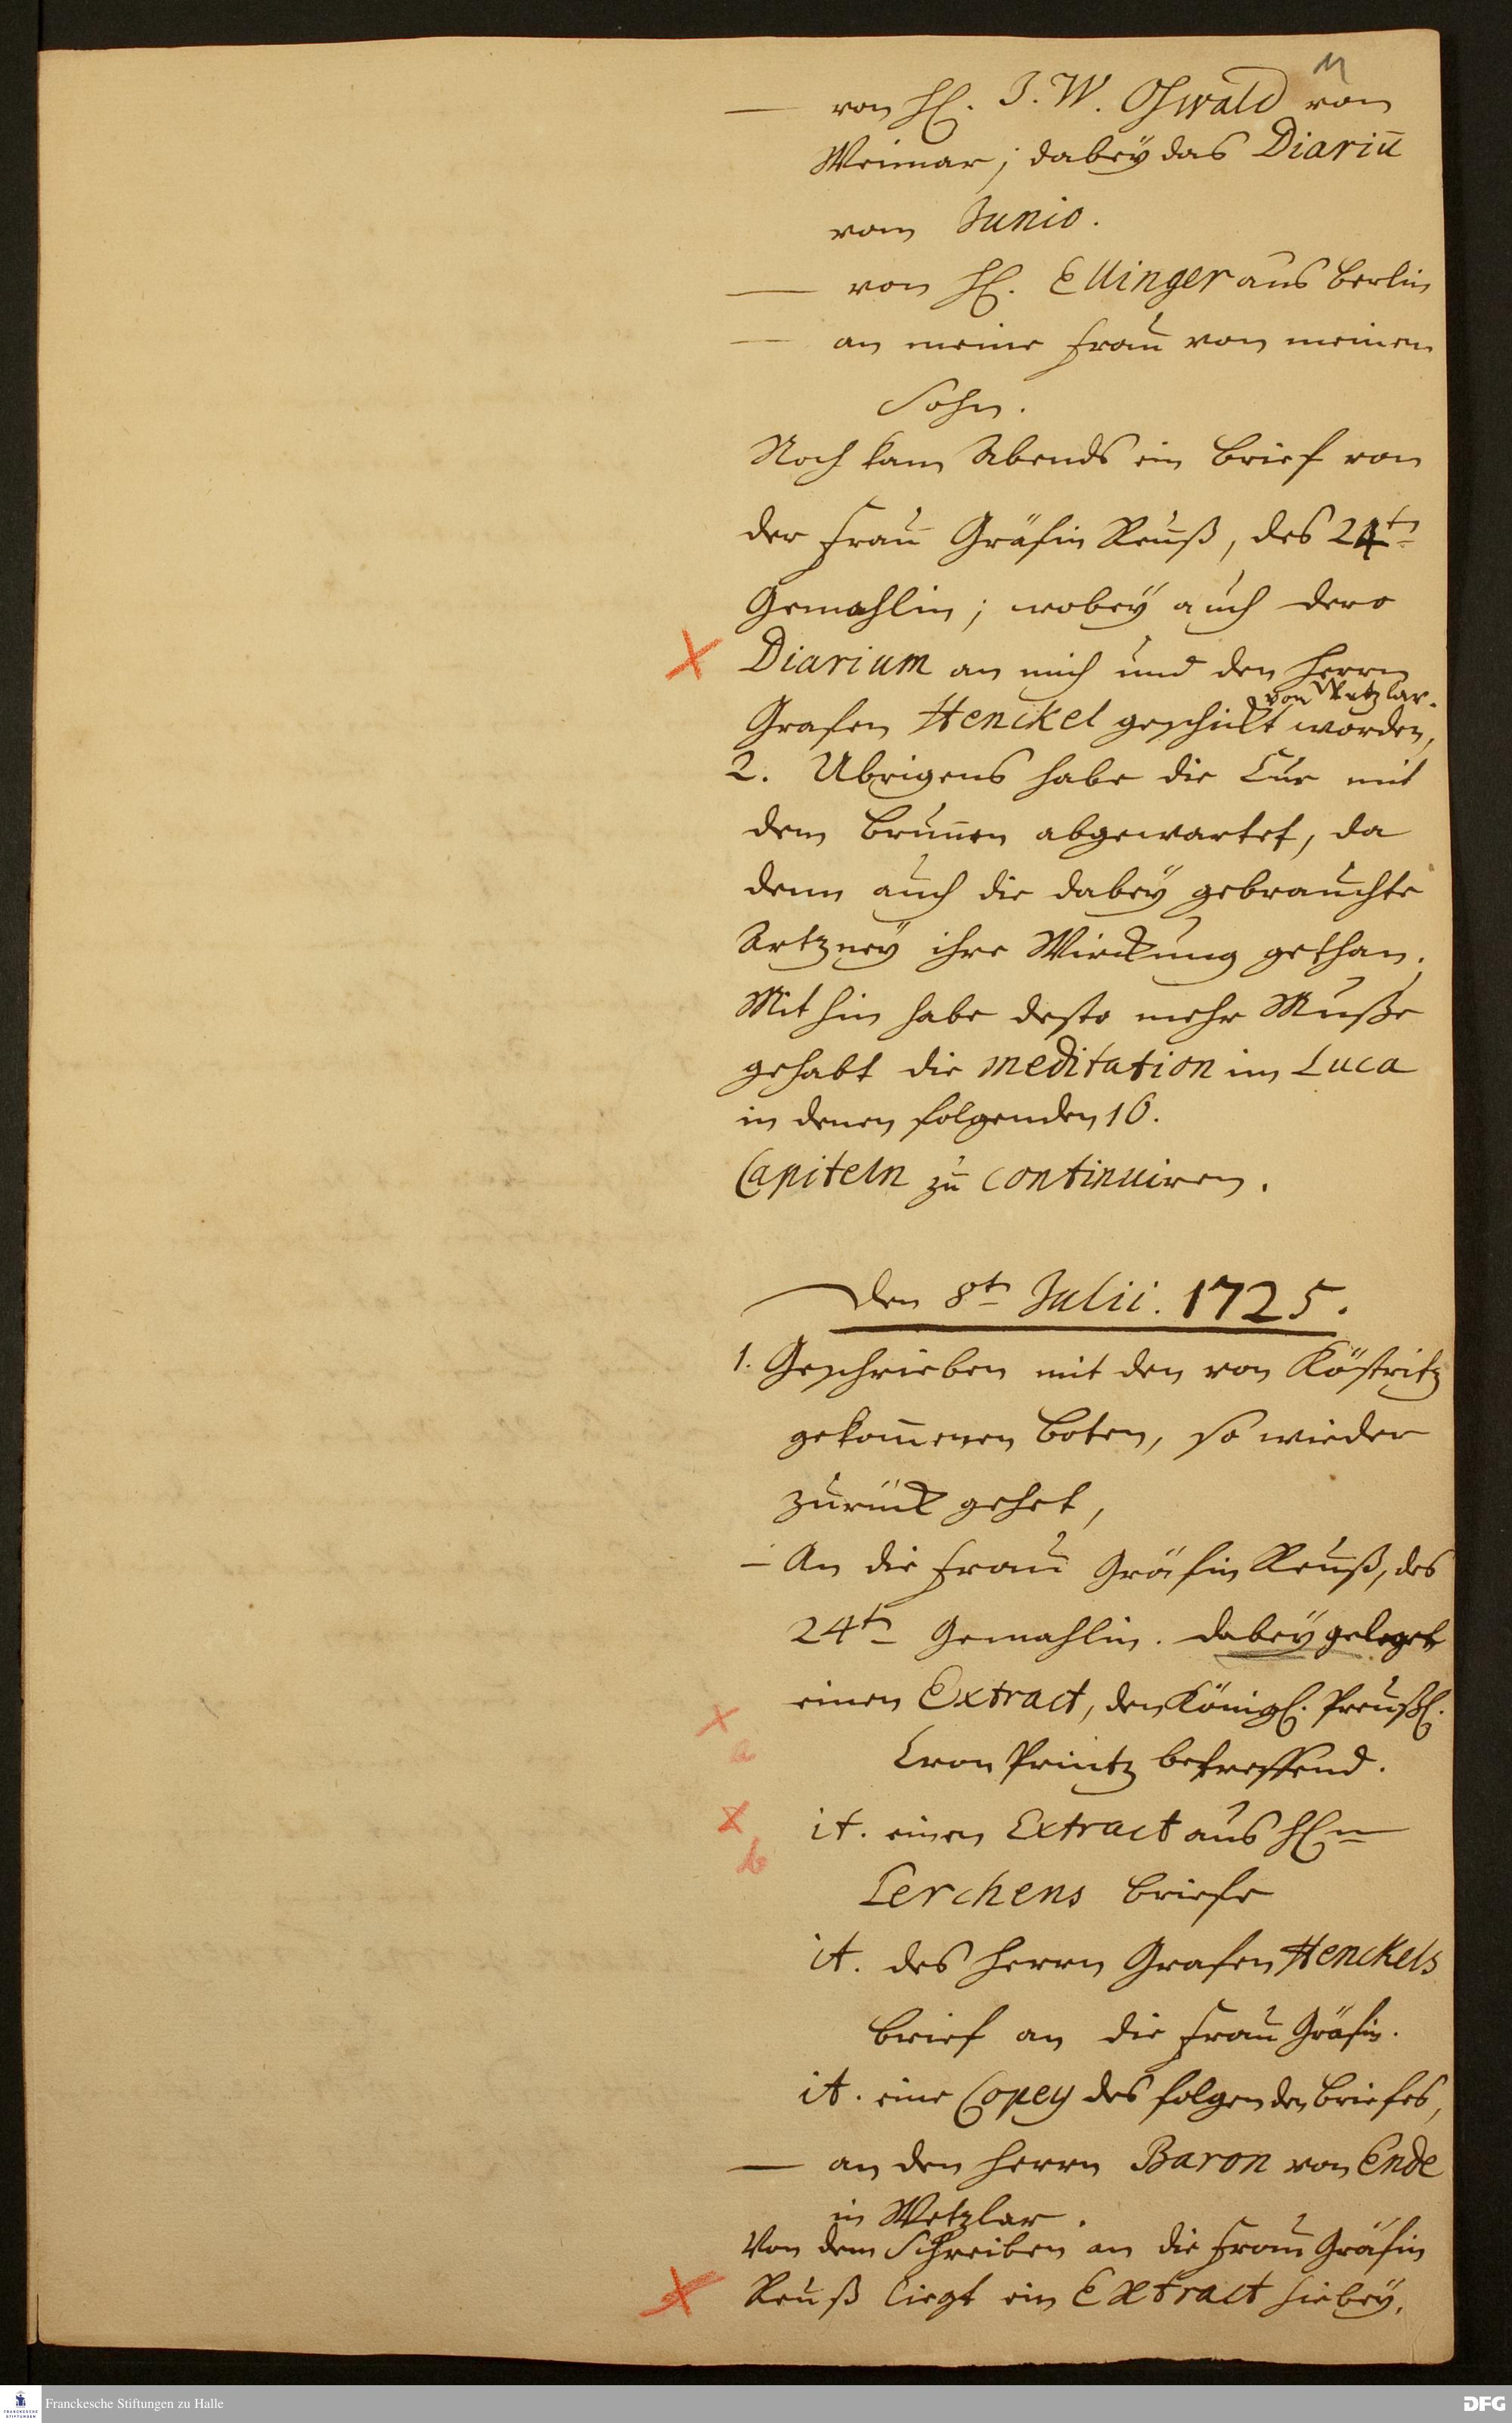 11
— von H. J. W. Oswald von
Weimar; dabey das Diariū
vom Junio.
— von H. Ellinger aus Berlin
— an meine Frau von meinem
Sohn.
Noch kam Abends ein Brief von
der Frau Gräfin Reuß, des 24t
Gemahlin; wobey auch dero
Diarium an mich und den Herrn
von Wetzlar.
Grafen Henckel geschickt worden,
2. Ubrigens habe die Cur mit
dem Brunnen abgewartet, da
denn auch die dabey gebrauchte
Artzney ihre Wirckung gethan.
Mithin habe desto mehr Muße
gehabt die meditation im Luca
in denen folgenden 16.
Capiteln zu continuiren.
Den 8t Julii. 1725.
1. Geschrieben mit den von Köstritz
gekom̅enen Boten, so wieder
zurück gehet,
— An die Frau Gräfin Reuß, des
24t Gemahlin. dabey geleget
einen Extract, den Königl. Preußl.
Cron Printz betreffend.
a
it. einen Extract aus Hn
b
Lerchens Briefe
it. des Herrn Grafen Henckels
Brief an die Frau Gräfin.
it. eine Copey des folgenden Briefes,
— an den Herrn Baron von Ende
in Wetzlar.
Von dem Schreiben an die Frau Gräfin
Reuß liegt ein Extract hiebey.
Franckesche Stiftungen zu Halle
DFG